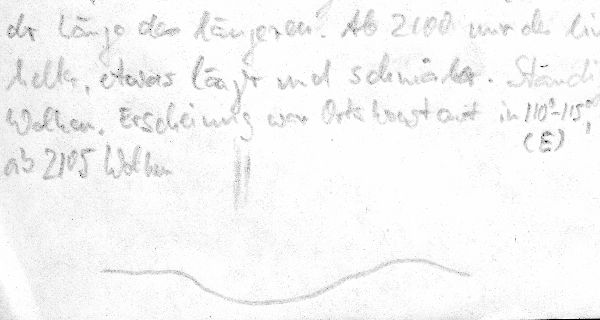 der Länge des längeren. Ab 2100 nur der
heller, etwas länger und schmäler. Ständi
Wolken. Erscheinung war Ortskonstant in 110°-115°,
(E)
ab 2105 Wolken